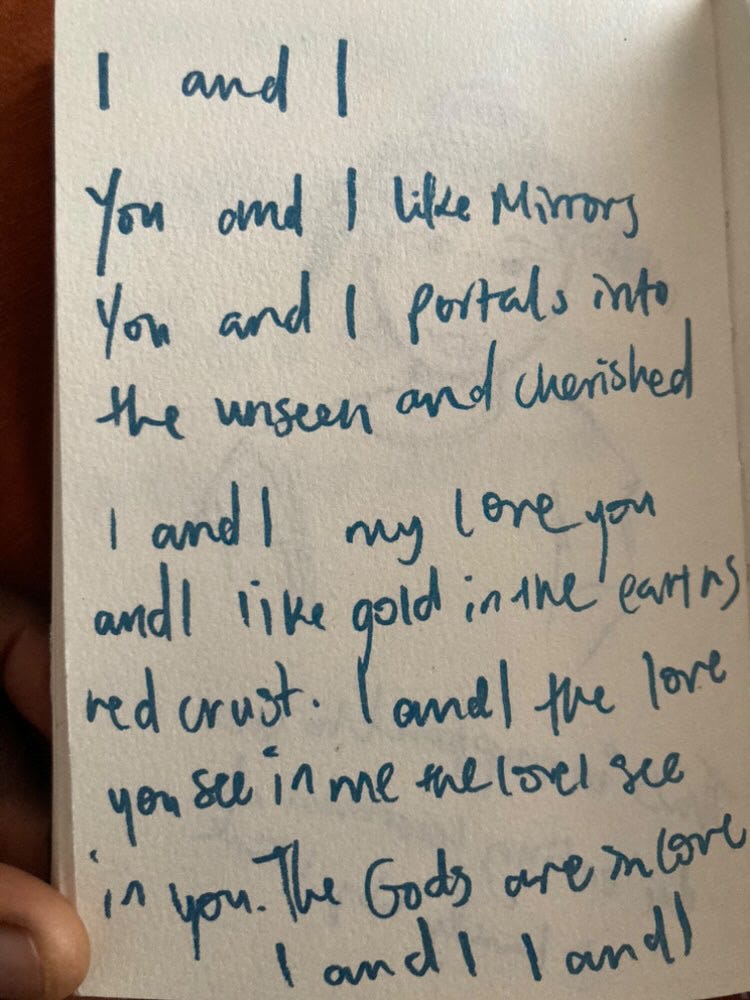 I and I
You and I like Mirrors
You and I portals into
the unseen and cherished
I and I my love you
and I like gold in the earths
red crust. I and I the love
you see in me the love I see
in you. The Gods are in love
I and I I and I